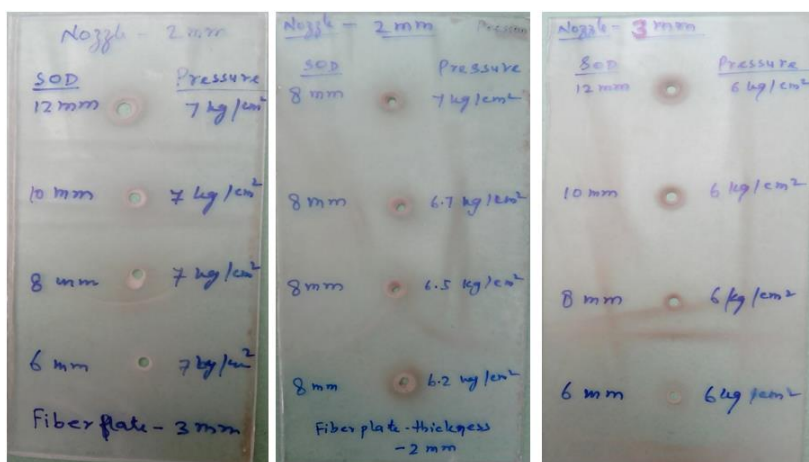 Nozzle - 2mm
SOD Pressure
12 mm 7 kg/cm²
10 mm 7 kg/cm²
8 mm 7 kg/cm²
6 mm 7 kg/cm²
Fiber plate - 3 mm
Nozzle - 2 mm
SOD Pressure
8 mm 7 kg/cm²
8 mm 6.7 kg/cm²
8 mm 6.5 kg/cm²
8 mm 6.2 kg/cm²
Fiber plate - thickness
- 2 mm
Nozzle - 3 mm
SOD Pressure
12 mm 6 kg/cm²
10 mm 6 kg/cm²
8 mm 6 kg/cm²
6 mm 6 kg/cm²